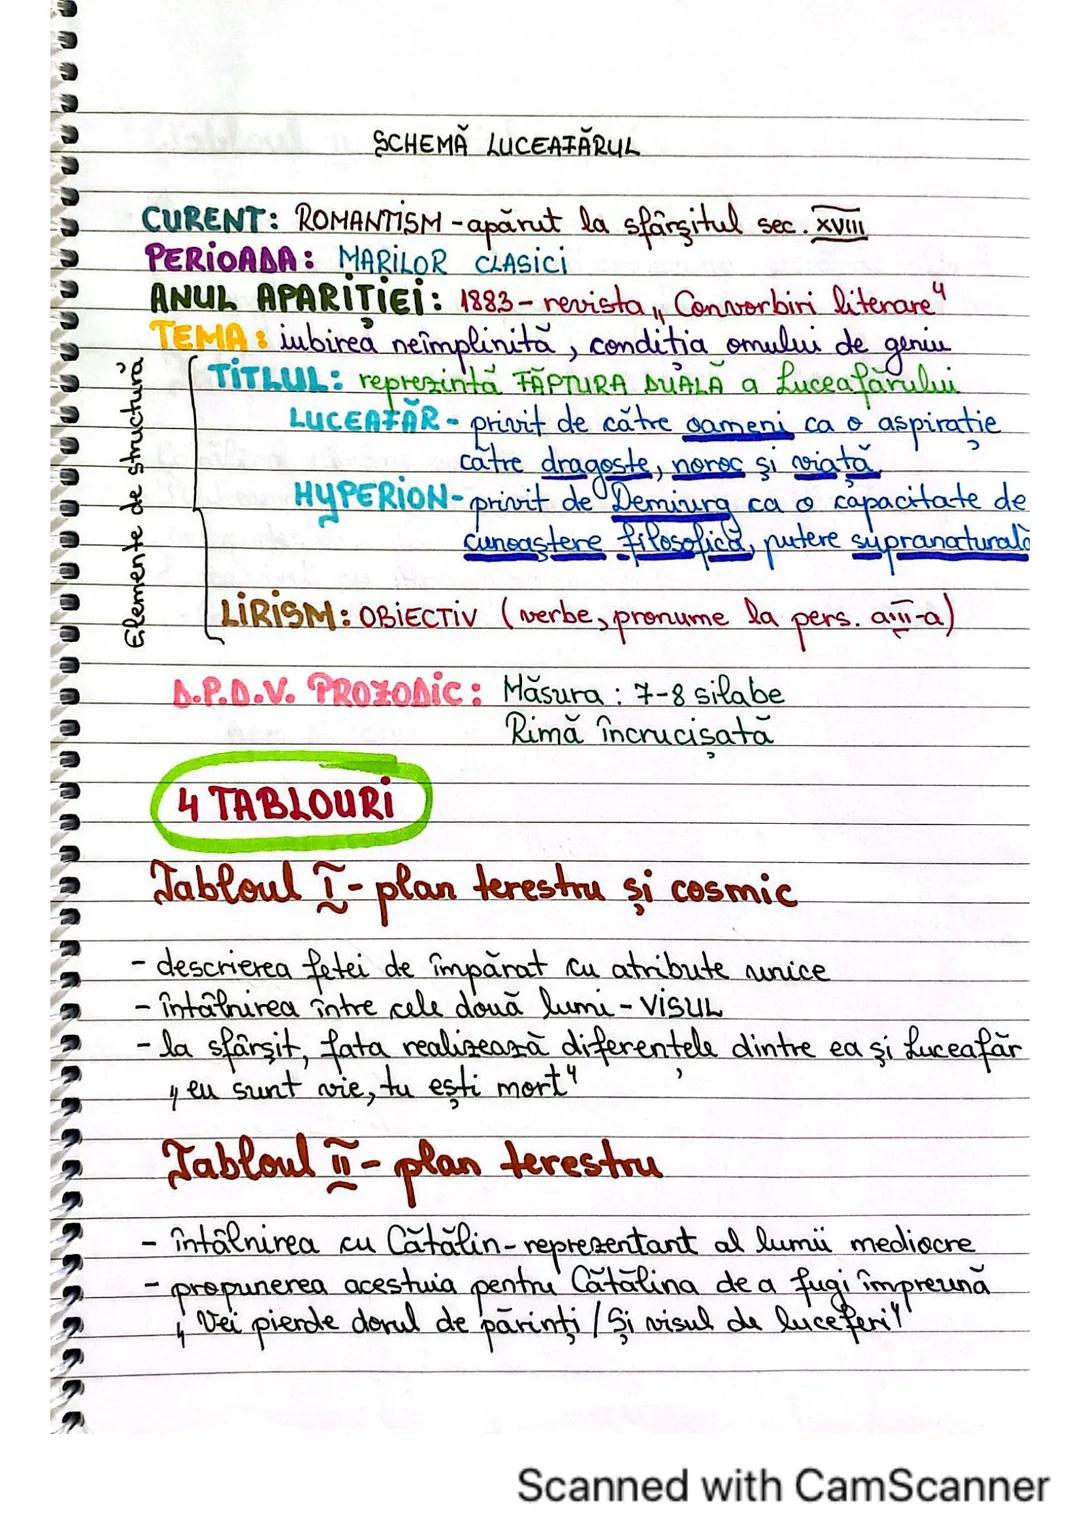 SCHEMĂ LUCEAFĂRUL
CURENT: ROMANTISM - apărut la sfârșitul sec. XVIII
PERIOADA: MARILOR CLASICI
ANUL APARIȚIEI: 1883 - revista „Convorbiri literare"
TEMA: iubirea neîmplinită, condiția omului de geniu
Elemente de structură
TITLUL: reprezintă FĂPTURA DUALĂ a Luceafărului
LUCEAFĂR - privit de către oameni ca o aspirație
către dragoste, noroc și viață
HYPERION - privit de Demiurg ca o capacitate de
cunoaștere filosofică, putere supranaturală
LIRISM: OBIECTIV (verbe, pronume la pers. a III-a)
D.P.D.V. PROZODIC: Măsura: 7-8 silabe
Rimă încrucișată
4 TABLOURI
Tabloul I - plan terestru și cosmic
- descrierea fetei de împărat cu atribute unice
- întâlnirea între cele două lumi - VISUL
- la sfârșit, fata realizează diferențele dintre ea și Luceafăr
„eu sunt vie, tu ești mort"
Tabloul II - plan terestru
- întâlnirea cu Cătălin - reprezentant al lumii mediocre
- propunerea acestuia pentru Cătălina de a fugi împreună
„Vei pierde dorul de părinți / Și visul de luceferi"
Scanned with CamScanner